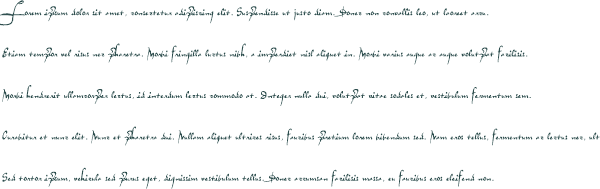 Lorem ipsum dolor sit amet, consectetur adipiscing elit. Suspendisse ut justo diam. Donec non convallis leo, ut laoreet arcu.
Etiam tempor vel risus nec pharetra. Morbi fringilla luctus nibh, a imperdiet nisl aliquet in. Morbi varius augue ac augue volutpat facilisis.
Morbi hendrerit ullamcorper lectus, id interdum lectus commodo at. Integer nulla dui, volutpat vitae sodales et, vestibulum fermentum sem.
Curabitur et nunc elit. Nunc et pharetra dui. Nullam aliquet ultrices risus, faucibus pretium lorem bibendum sed. Nam eros tellus, fermentum ac lectus nec, ult
Sed tortor ipsum, vehicula sed purus eget, dignissim vestibulum tellus. Donec accumsan facilisis massa, eu faucibus eros eleifend non.